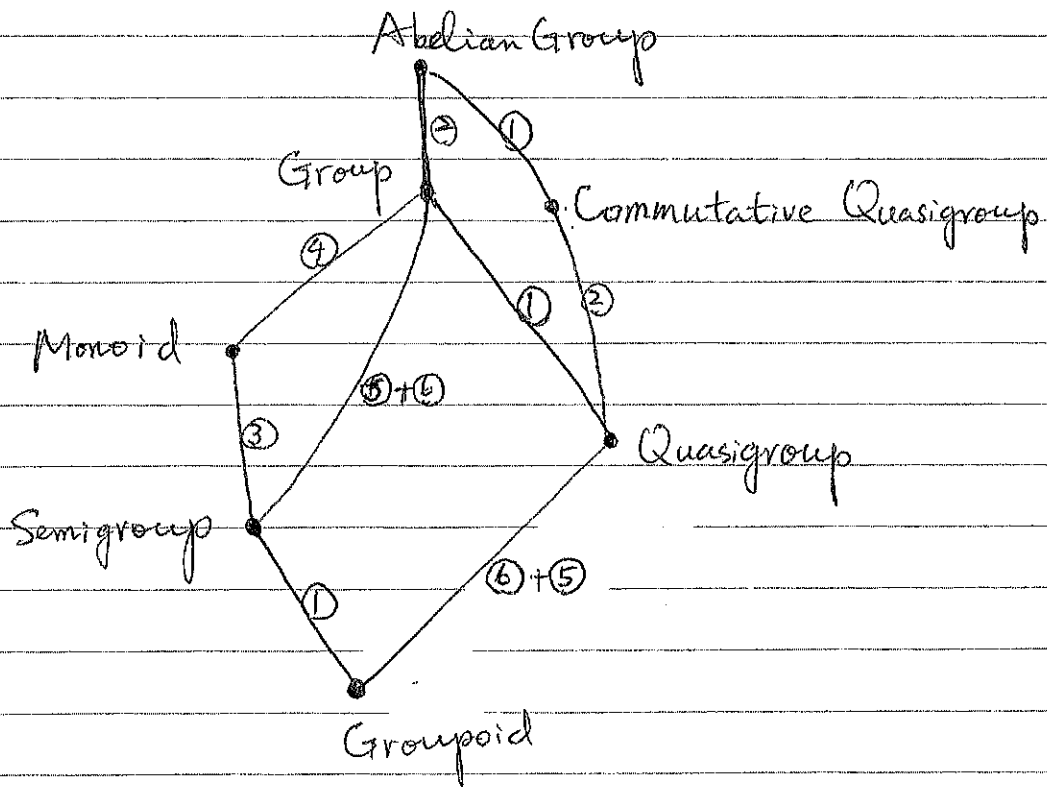 Abelian Group
②
①
Group
Commutative Quasigroup
④
①
②
Monoid
⑤+⑥
③
Quasigroup
Semigroup
⑥+⑤
①
Groupoid